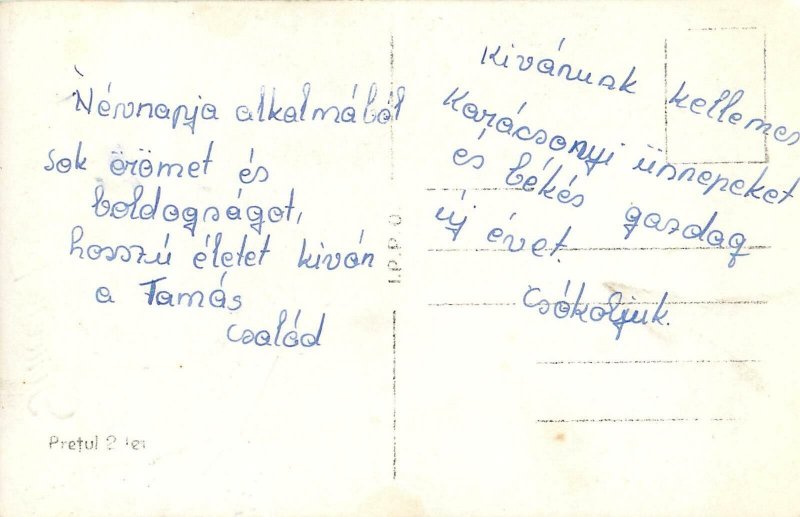 Névnapja alkalmából
sok örömet és
boldogságot,
hosszú életet kíván
a Tamás
család
Kívánunk kellemes
Karácsonyi ünnepeket
és békés gazdag
új évet.
Csókoljuk.
I.P.P.O.
Prețul 2 lei